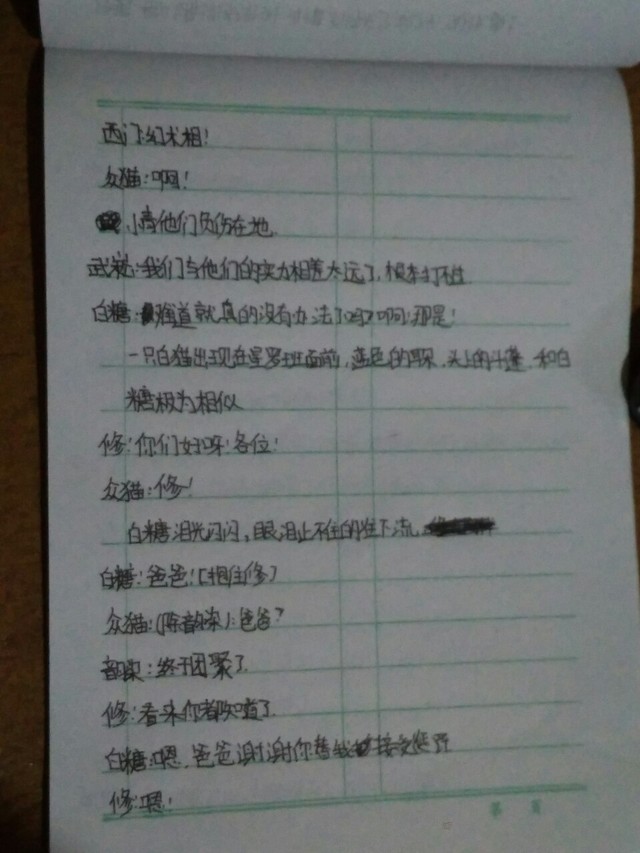 西门:幻术相!
众猫:啊!
小青他们负伤在地.
武崧:我们与他们的实力相差太远了,根本打不过
白糖:难道就真的没有办法了吗?啊!那是!
一只白猫出现在星罗班面前,蓝色的眼,头上的斗篷,和白
糖极为相似
修:你们好呀!各位!
众猫:修!
白糖泪光闪闪,眼泪止不住的往下流
白糖:爸爸![抱住修]
众猫:(除韵染):爸爸?
韵染:终于团聚了.
修:看来你都知道了.
白糖:嗯,爸爸谢谢你替我接受惩罚
修:嗯!
第 页